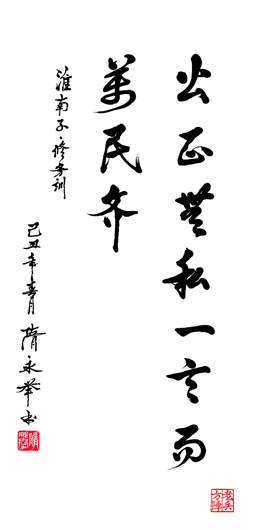 公正無私一言而
萬民齐
淮南子·修务训
己丑年春月隋永举书